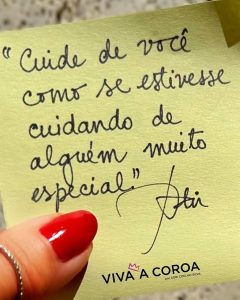 "Cuide de você
como se estivesse
cuidando de
alguém muito
especial."
VIVA A COROA